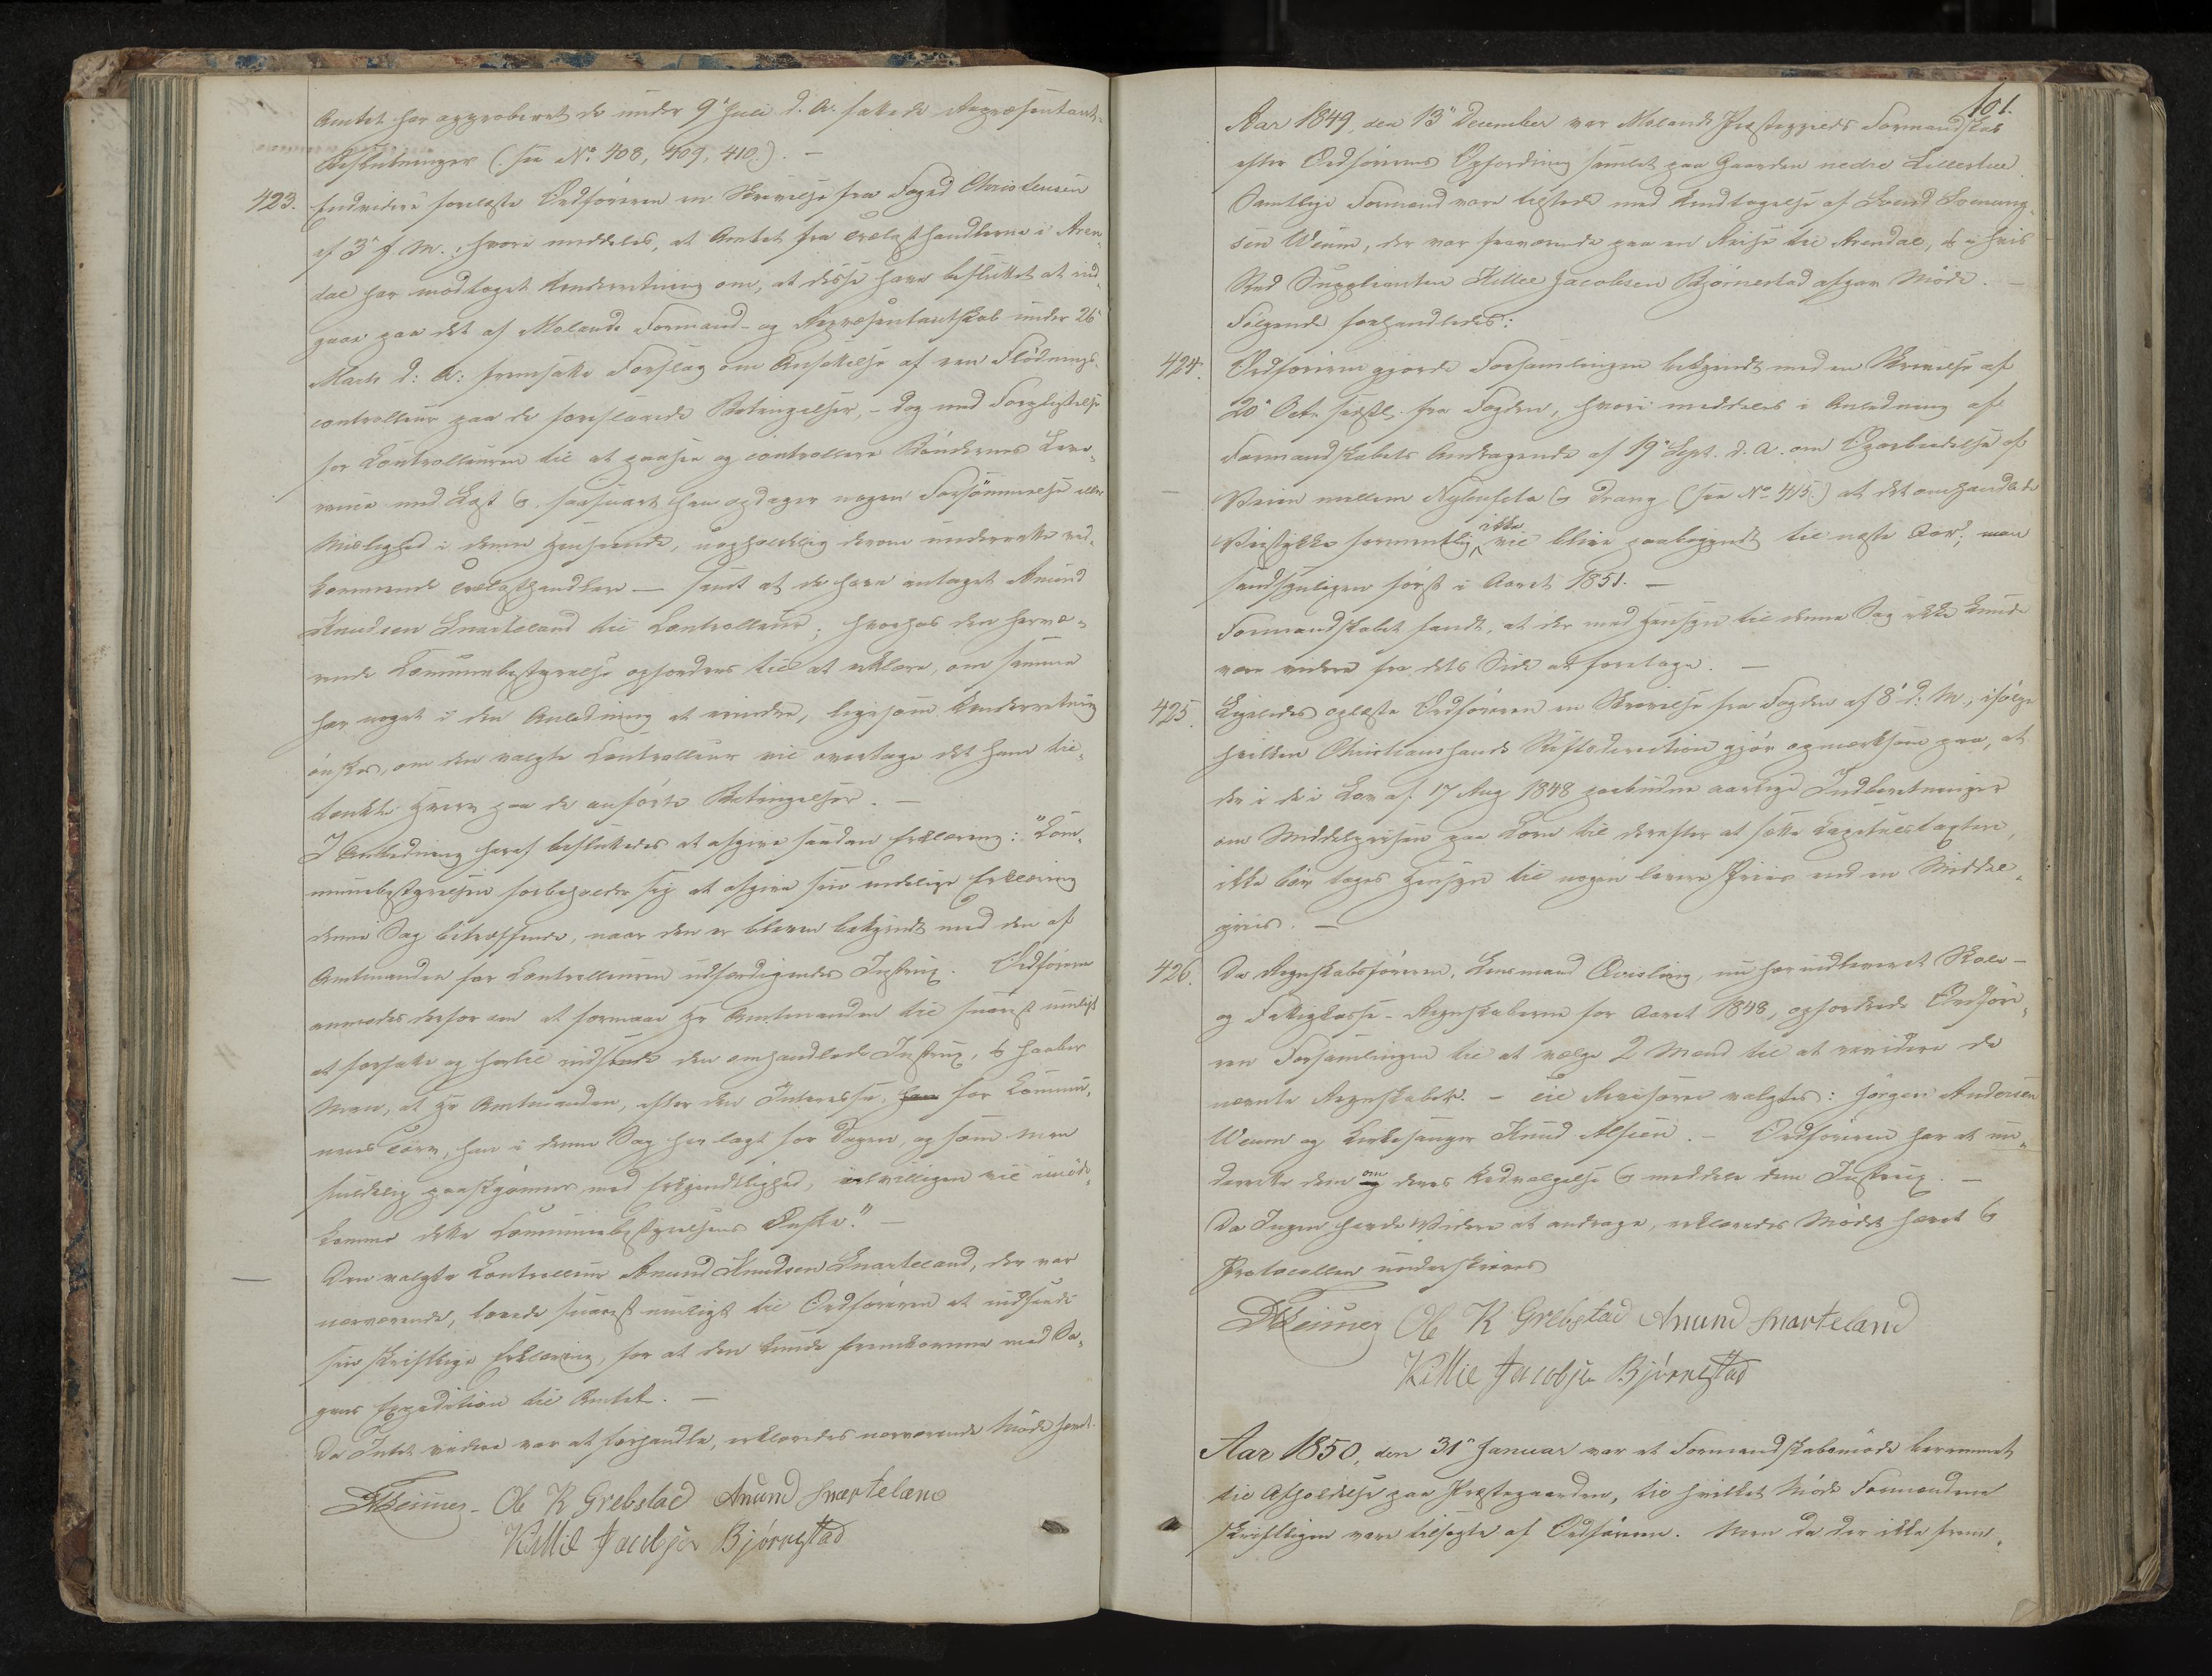 Amtet har approberet de under 9de Juli d. A. fattede Repræsentant-
Beslutninger (see No 408, 409, 410.). —
423. Endvidere forelæste Ordføreren en Skrivelse fra Foged Christensen
af 3de f. M., hvori meddeles, at Amtet fra Trælasthandlerne i Aren-
dal har modtaget Underretning om, at disse have besluttet at ind-
gaae paa det af Molands Formand- og Repræsentantskab under 26de
Marts d: A: fremsatte Forslag om Ansættelse af een Flødnings-
controlleur paa de foreslaaede Betingelser, - dog med Forpligtelse
for Controlleuren til at paasee og controllere Bøndernes Leve-
rance med Last & saasnart han opdager nogen Forsømmelse eller
Mislighed i denne Henseende, uopholdelig derom underrette ved-
kommende Trælasthandler — samt at de have antaget Anund
Knudsen Snarteland til Controlleur; hvorhos den herva-
rende Communebestyrelse opfordres til at erklære, om samme
har noget i den Anledning at erindre, ligesom Underretning
ønskes, om den valgte Controlleur vil overtage det ham til-
tænkte Hverv paa de anførte Betingelser. —
I Anledning heraf besluttedes at afgive saadan Erklæring: "Com-
munebestyrelsen forbeholder sig at afgive sin endelige Erklæring
denne Sag betræffende, naar den er bleven bekjendt med den af
Amtmanden for Controlleuren udfærdigendes Instrux. Ordføreren
anmodes derfor om at formaae Hr Amtmanden til snarest muligt
at forfatte og hertil indsende den omhandlede Instrux, & haaber
Man, at Hr Amtmanden, efter den Interesse, for Commu-
nens Tarv, han i denne Sag har lagt for Dagen, og som Man
skyldelig paaskjønner med Erkjendtlighed, velvilligen vil imøde-
komme dette Communebestyrelsens Ønske." —
Den valgte Controlleur Anund Knudsen Snarteland, der var
nærværende, lovede snarest muligt til Ordføreren at indsende
sin skriftlige Erklæring, for at den kunde fremkomme med Sa-
gens Expedition til Amtet. —
Da Intet videre var at forhandle, erklæredes nærværende Møde hævet.
Ole K Grebstad Anund Snarteland
Killie Jacobsen Bjørnestad
101.
Aar 1849, den 13de December var Molands Præstegjelds Formandskab
efter Ordførerens Opfordring samlet paa Gaarden nedre Lilletvet.
Samtlige Formænd vare tilstede med Undtagelse af Svend Svenung-
sen Weum, der var fraværende paa en Reise til Arendal, & i hvis
Sted Suppleanten Killie Jacobsen Bjørnestad afgav Møde. —
Følgende forhandledes:
424. Ordføreren gjorde Forsamlingen bekjendt med en Skrivelse af
20de Octr sidstl. fra Fogden, hvori meddeles i Anledning af
Formandskabets Andragende af 19de Sept. d. A. om Oparbeidelse af
Veien mellem Nybusletta & Drang (see No 415.) at det omhandlede
Veistykke formentlig ikke vil blive paabegyndt til næste Aar; men
sandsynligen først i Aaret 1851. —
Formandskabet fandt, at der med Hensyn til denne Sag ikke kunde
være videre fra dets Side at foretage. —
425. Ligeledes oplæste Ordføreren en Skrivelse fra Fogden af 8de d. M., ifølge
hvilken Christianssands Stiftsdirection gjør opmærksom paa, at
der i de i Lov af 17 Aug 1848 paabudne aarlige Indberetninger
om Middelprisen paa Korn til derefter at sætte Capitelstaxten,
ikke bør tages Hensyn til nogen lavere Priis end en Middel-
priis. —
426. Da Regnskabsføreren, Lensmand Qvisling, nu har indleveret Skole-
og Fattigkasse-Regnskaberne for Aaret 1848, opfordrede Ordføre-
ren Forsamlingen til at vælge 2 Mænd til at revidere de
nævnte Regnskaber. — Til Revisorer valgtes: Jørgen Andersen
Weum og Kirkesanger Knud Alfsen. — Ordføreren har at un-
derrette dem om deres Udvælgelse & meddele dem Instrux. —
Da Ingen havde Videre at andrage, erklæredes Mødet hævet &
Protocollen underskreves
Ole K Grebstad Anund Snarteland
Killie Jacobsen Bjørnestad
Aar 1850, den 31te Januar var et Formandskabsmøde berammet
til Afholdelse paa Præstegaarden, til hvilket Møde Formændene
skriftligen vare tilsagte af Ordføreren. Men da der ikke frem-